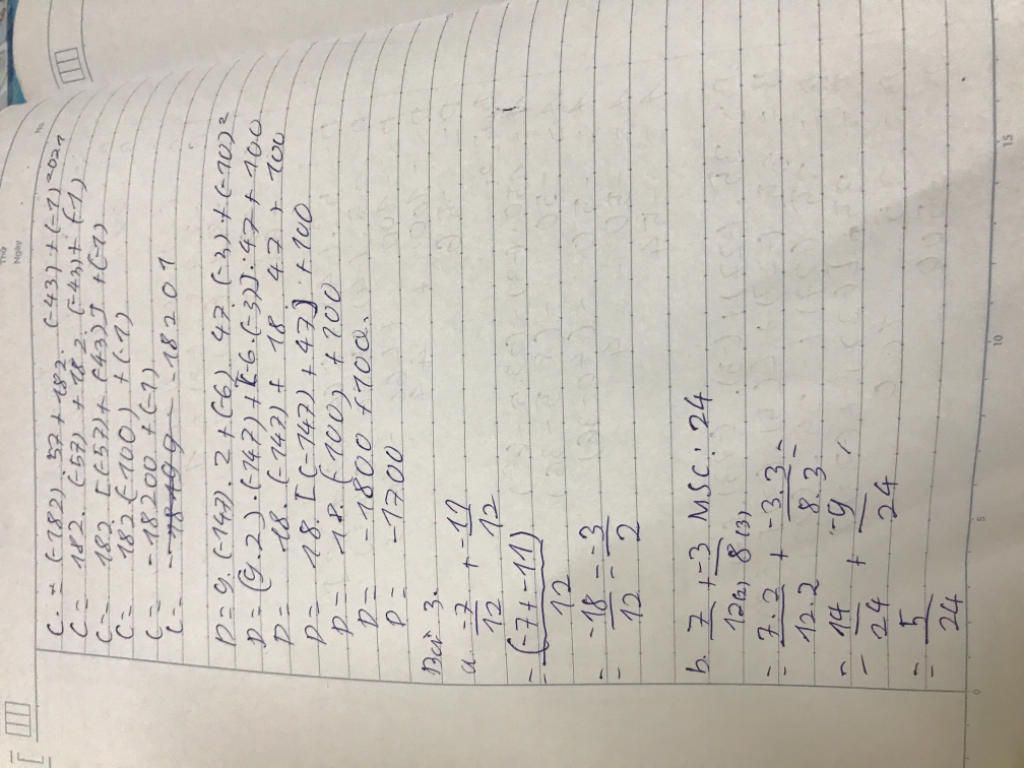 C = (-182). 57 + 182. (-43) + (-1)²⁰²¹
C = 182. (-57) + 182. (-43) + (-1)
C = 182. [(-57) + (-43)] + (-1)
C = 182. (-100) + (-1)
C = -18200 + (-1)
C = -18201
D = 9. (-147). 2 + (-6). 47. (-3) + (-10)²
D = (9.2). (-147) + [(-6. (-3)]. 47 + 100
D = 18. (-147) + 18. 47 + 100
D = 18. [(-147) + 47] + 100
D = 18. (-100) + 100
D = -1800 + 100.
D = -1700
Bài 3.
a. -7/12 + -11/12
= (-7 + -11)/12
= -18/12 = -3/2
b. 7/12(2) + -3/8(3) MSC: 24
= 7.2/12.2 + -3.3/8.3 =
= 14/24 + -9/24
= 5/24
5
10
15